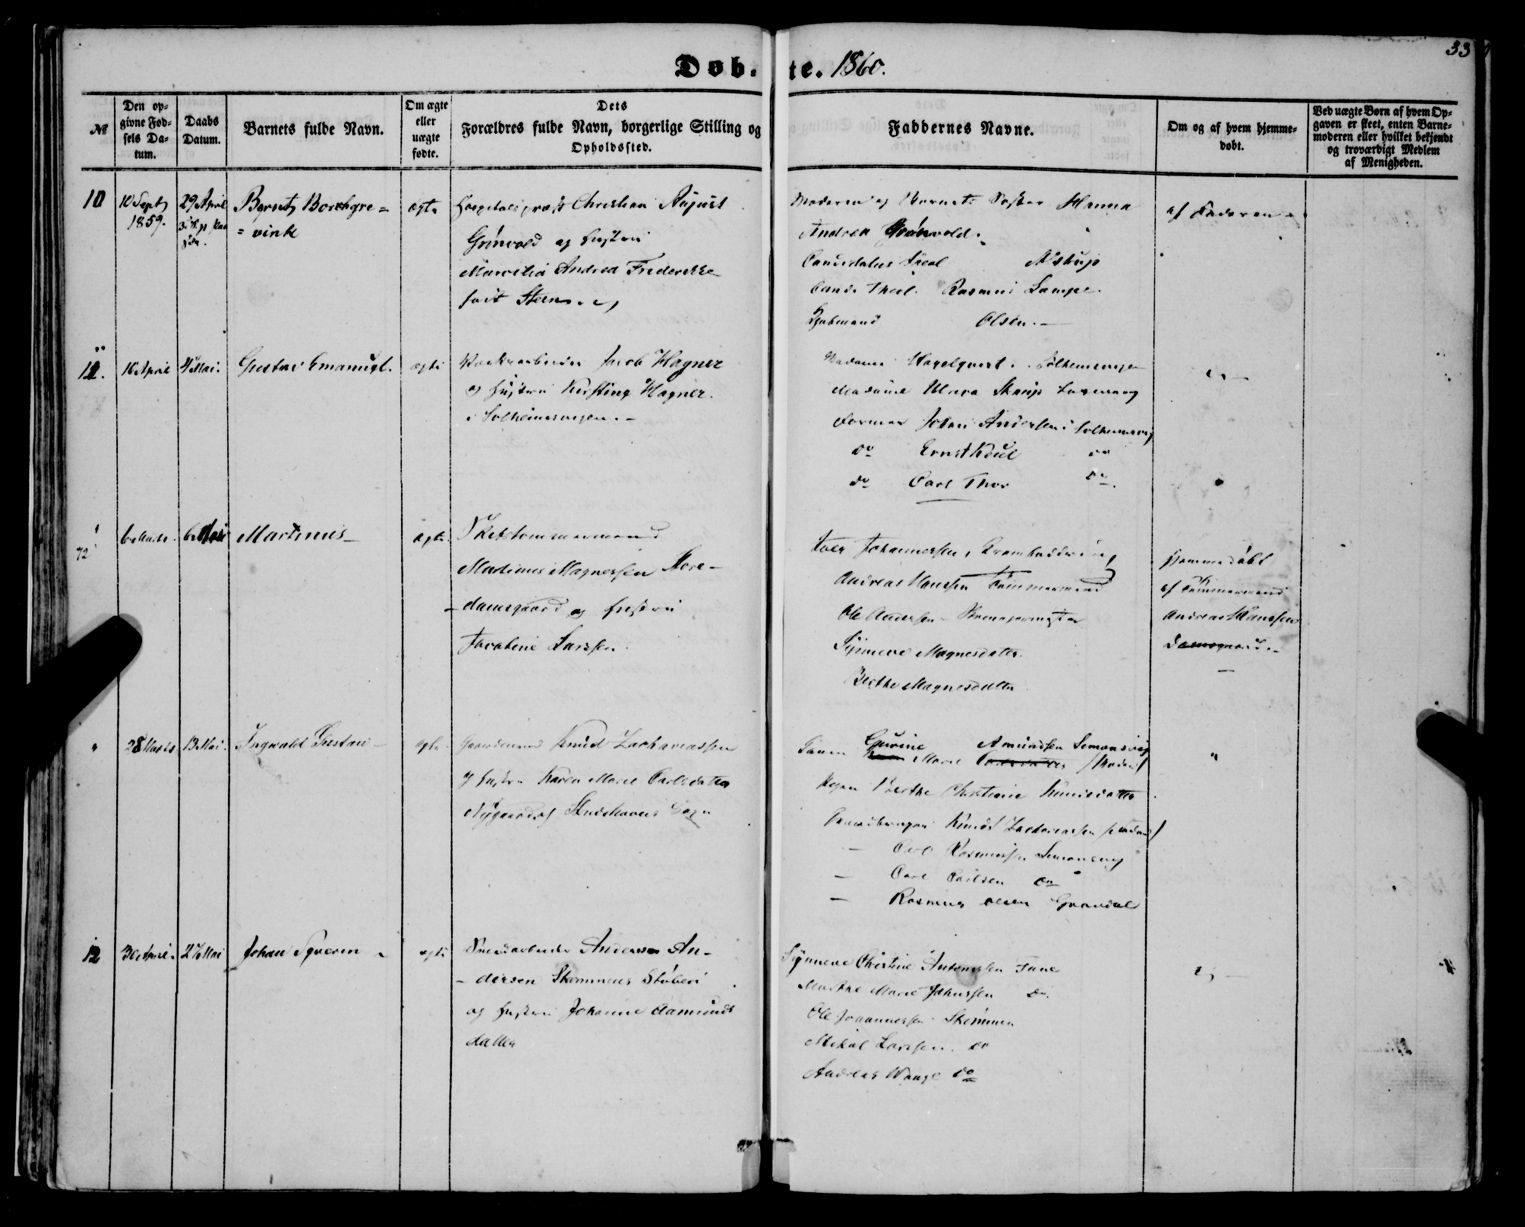 33
Døb. te. 1860.
№
Den op-
givne Fød-
sels Da-
tum.
Daabs
Datum.
Barnets fulde Navn.
Om ægte
eller
uægte
fødte.
Dets
Forældres fulde Navn, borgerlige Stilling og
Opholdssted.
Faddernes Navne.
Om og af hvem hjemme-
døbt.
Ved uægte Børn af hvem Op-
gaven er skeet, enten Barne-
moderen eller hvilket bekjendt
og troværdigt Medlem
af Menigheden.
10
10 Sept
1859.
29 April
Berntz Borchgre-
= vink
ægte
Hospitalspræst Christian August
Grønvold og Hustru
Marcelia Andrea Frederikke
født Steen
Moderen og Barnets Søster Hanna
Andrea Grønvold.
Candidatus theol Astrup
Cand. Theol. Rasmus Lampe.
Kjøbmand Olsen.
af Faderen
11.
18 April
4 Mai.
Gustav Emanuel.
ægte
Værksarbeider Jacob Hagner
og Hustru Kirsting Hagner.
i Solheimsvigen.
Madame Hagelqvist i Solheimsvigen
Madame Maren Skarup Laxevaag
Former Johan Andersen i Solheimsvig
do Ernst Keul do
do Carl Thor do
6 Marts
6 Mai
Martinus
ægte
Skibstømmermand
Martinus Magnessen Store-
- damsgaard og Hustru
Jacobine Larssen.
Andreas Hanssen Tømmermand
Ole Andersen
Synneve Magnesdatter
Berthe Magnesdatter
Hjemmedøbt
af Tømmermand
Andreas Hanssen
Damsgaard.
"
28 Marts
13 Mai.
Ingwald Gustav
ægte
Gaardmand Knud Zachariassen
og Hustru Karen Marie Carlsdatter
Nygaard af Skudshavns Sogn
Gurine Amundsen Simonsvig
Marie
Pigen Berthe Christine Knudsdatter
Knud Zachariassen
- Carl Rasmussen Simonsvig
- Carl Carlsen do
- Rasmus Olsen
"
12
30 April
27 Mai
Johan Severin
ægte
Andersen An-
- dersen Skammens Støberi
og Hustru Johanne Aamunds
datter
Synneve Christine Antonessen Fane
Marthe Marie Johnssen do.
Ole Johannessen Skammen
Mikal Larssen do
Andreas Waage do